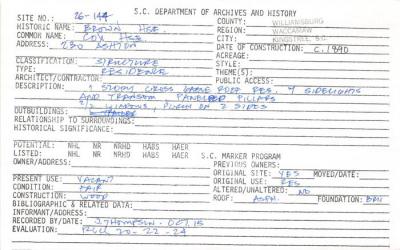 S.C. DEPARTMENT OF ARCHIVES AND HISTORY
SITE NO.: 26-144
HISTORIC NAME: BROWN HSE.
COMMON NAME: COX HSE.
ADDRESS: 230 ASHTON
COUNTY: WILLIAMSBURG
REGION: WACCAMAW
CITY: KINGSTREE, S.C.
DATE OF CONSTRUCTION: C. 1840
CLASSIFICATION: STRUCTURE
TYPE: RESIDENCE
ARCHITECT/CONTRACTOR:
ACREAGE:
STYLE:
THEME(S):
PUBLIC ACCESS:
DESCRIPTION: 1 STORY CROSS GABLE ROOF RES. SIDELIGHTS
AND TRANSOM PANELED PILLARS
2/2 PORCH ON 2 SIDES
OUTBUILDINGS:
RELATIONSHIP TO SURROUNDINGS:
HISTORICAL SIGNIFICANCE:
POTENTIAL: NHL NR NRHD HABS HAER
LISTED: NHL NR NRHD HABS HAER S.C. MARKER PROGRAM
OWNER/ADDRESS:
PREVIOUS OWNERS:
PRESENT USE: VACANT
ORIGINAL SITE: YES MOVED/DATE:
CONDITION: FAIR
ORIGINAL USE: RES
CONSTRUCTION: WOOD
ALTERED/UNALTERED: NO
BIBLIOGRAPHIC & RELATED DATA:
ROOF: ASPH. FOUNDATION:
INFORMANT/ADDRESS:
RECORDED BY/DATE: J. THOMPSON - OCT. 15
EVALUATION: 20-22-24